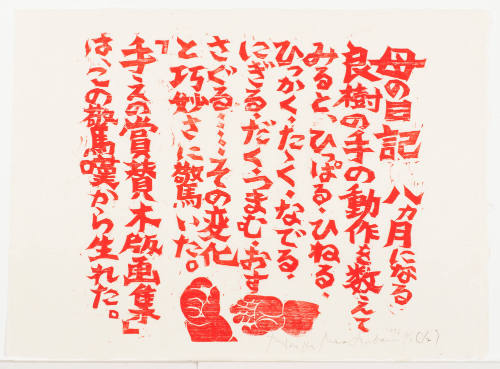 母の日記 八カ月になる
良樹の手の動作を数えて
みると、ひっぱる・ひねる・
ひっかく・たゝく・なでる・
にぎる・だく・つまむ・おす
さぐる……その変化
と巧妙さに驚いた。
「手えの賞賛木版画集」
は、この驚嘆から生れた。